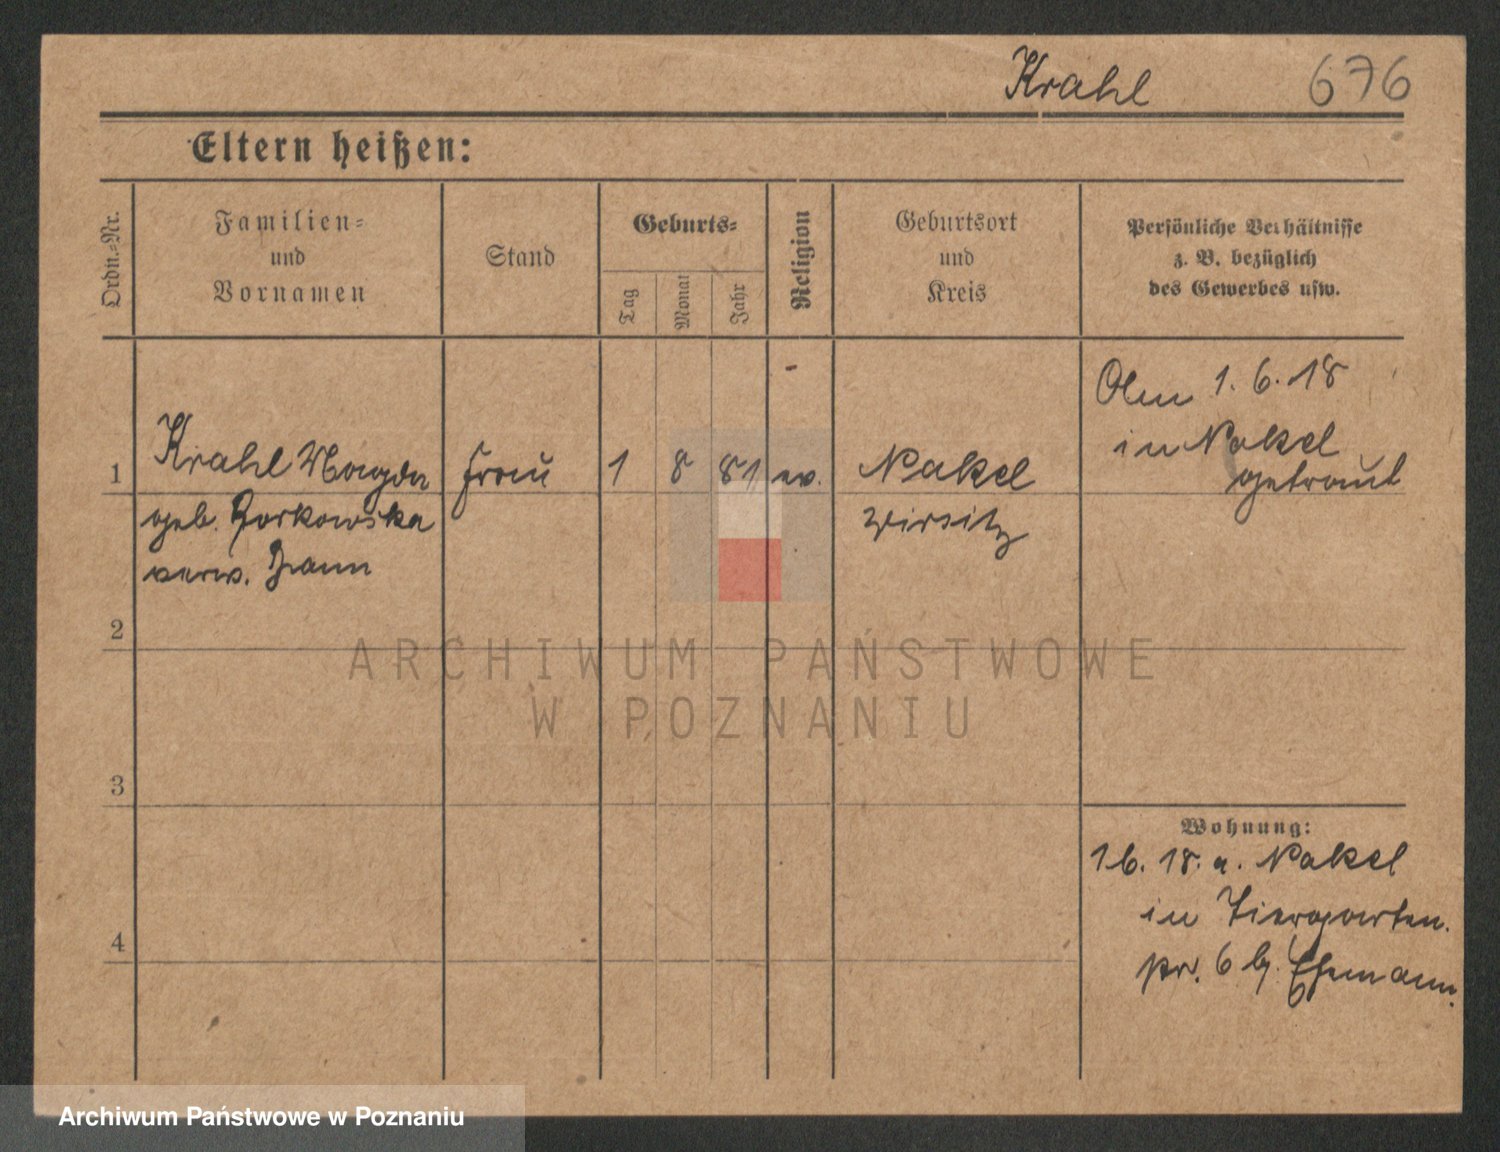 Krahl 676
Eltern heißen:
Ordn.-Nr.
Familien-
und
Vornamen
Stand
Geburts-
Tag
Monat
Jahr
Religion
Geburtsort
und
Kreis
Persönliche Verhältnisse
z. B. bezüglich
des Gewerbes usw.
1
Krahl Magda
geb. Borkowska
verw. Zann
Frau
1
8
81
ev.
Nakel
Wirsitz
Am 1. 6. 18
in Nakel
getraut
2
3
4
Wohnung:
1 6. 18. a. Nakel
in Tiergarten
pr. 6 b. Ehemann.
ARCHIWUM PAŃSTWOWE
W POZNANIU
Archiwum Państwowe w Poznaniu